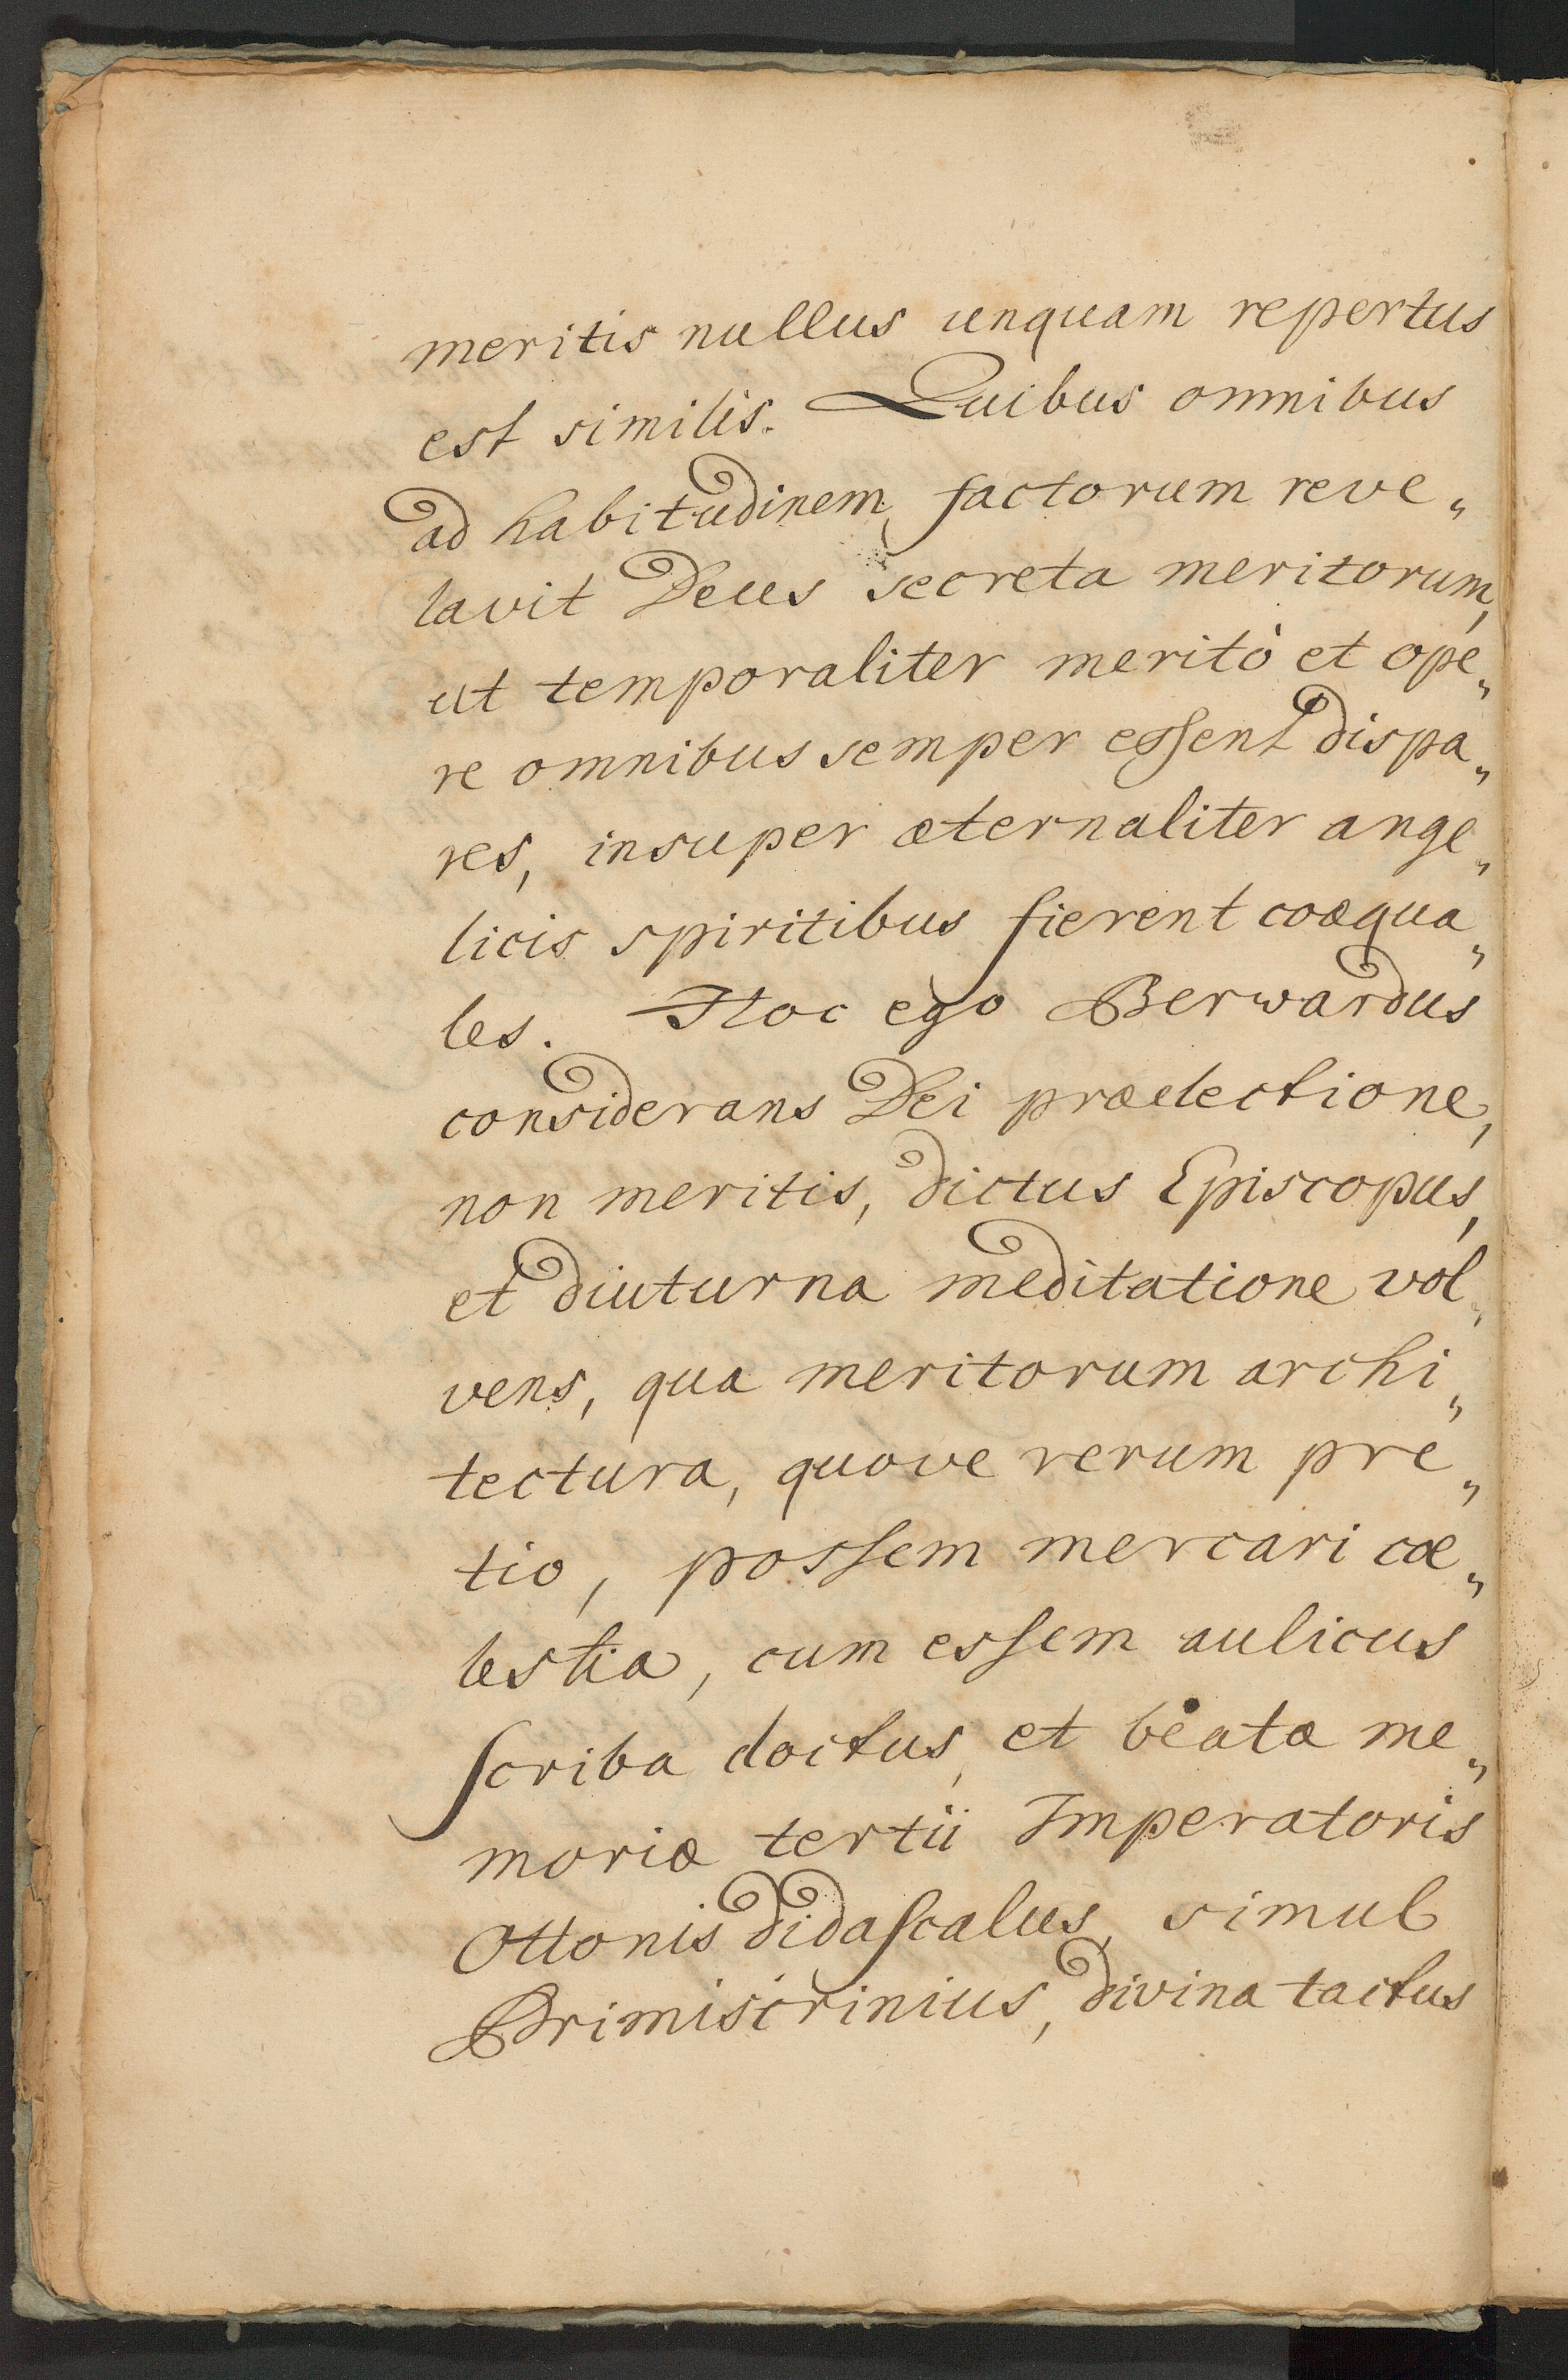 meritis nullus unquam repertus
est similis. Quibus omnibus
ad habitudinem factorum reve„
lavit Deus secreta meritorum,
ut temporaliter meritò et ope„
re omnibus semper essent dispa„
res, insuper æternaliter ange„
licis spiritibus fierent coæqua„
les. Hoc ego Berwardus
considerans Dei præelectione,
non meritis, dictus Episcopus,
et diuturna meditatione vol„
vens, qua meritorum archi„
tectura, quove rerum pre„
tio, possem mercari cœ„
lestia, cum essem aulicus
scriba doctus, et beatæ me„
moriæ tertii Imperatoris
Ottonis didascalus, simul
Primiscrinius, divina tactus